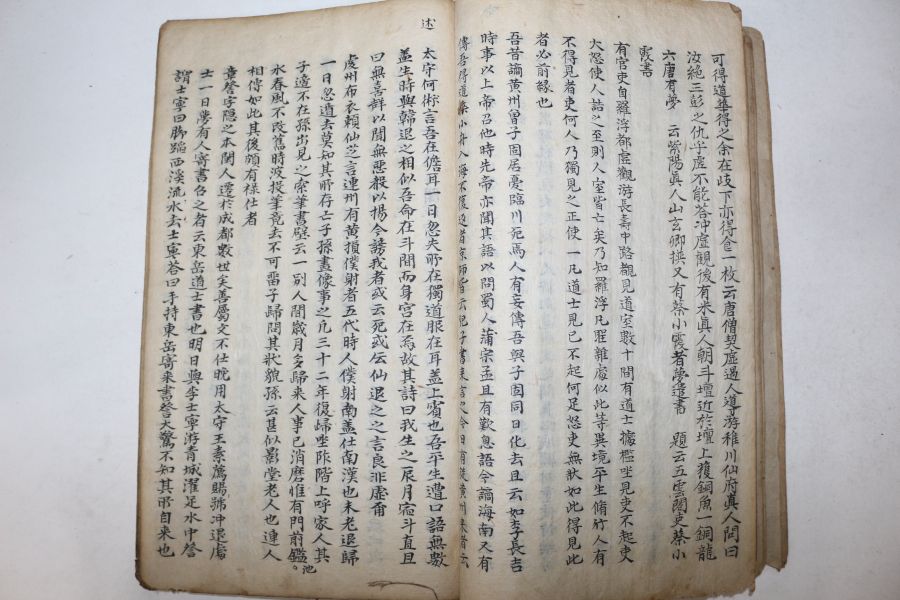 可得道華得之余在歧下亦得食一枚云唐僧契虛遇人導游稚川仙府眞人問曰
汝絶三彭之仇乎虛不能答冲虛觀後有米眞人朝斗壇近於壇上獲銅魚一銅龍
六唐有夢 云紫陽眞人山玄卿撰又有蔡小霞者夢遣書 題云五雲閣吏蔡小
霞書
有官吏自羅浮都虛觀游長壽中路覩見道室數十間有道士據檻坐見吏不起吏
大怒使人詰之至則人室皆亡矣乃知羅浮凡聖雜處似此等異境平生脩行人有
不得見者吏何人乃獨見之正使一凡道士見己不起何足怒吏無狀如此得見此
者必前縁也
吾昔謫黄州曾子固居憂臨川死焉人有妄傳吾與子固同日化去且云如李長吉
時事以上帝召他時先帝亦聞其語以問蜀人蒲宗孟且有歎息語今謫海南又有
傳吾得道乘小舟入海不復返者京師皆云兒子書來言之今日有從黄州來者云
太守何術言吾在儋耳一日忽失所在獨道服在耳蓋上賓也吾平生遭口語無數
盖生時與韓退之相似吾命在斗間而身宫在焉故其詩曰我生之辰月宿斗直且
曰無喜詳以聞無惡毅以揚今謗我者或云死或云仙退之之言良非虛甭
虔州布衣頼仙芝言連州有黄損僕射者五代時人僕射南盖仕南漢也未老退歸
一日忽遺去莫知其所存亡子孫畫像事之凢三十二年復歸坐阼階上呼家人其
子適不在孫出見之索筆書壁云一別人間歲月多歸來人事已消磨惟有門前鑑池
水春風不改舊時波投筆竟去不可畱子歸問其狀貌孫云甚似影堂老人也連人
相傳如此其後頗有祿仕者
章詧字隠之本閩人遷於成都數世矣善屬文不仕晚用太守王素薦賜號冲退處
士一日夢有人寄書召之者云東岳道士書也明日與李士寧游青城濯足水中詧
謂士寧曰脚踏西溪流水去士寧答曰手持東岳寄來書詧大驚不知其所自來也